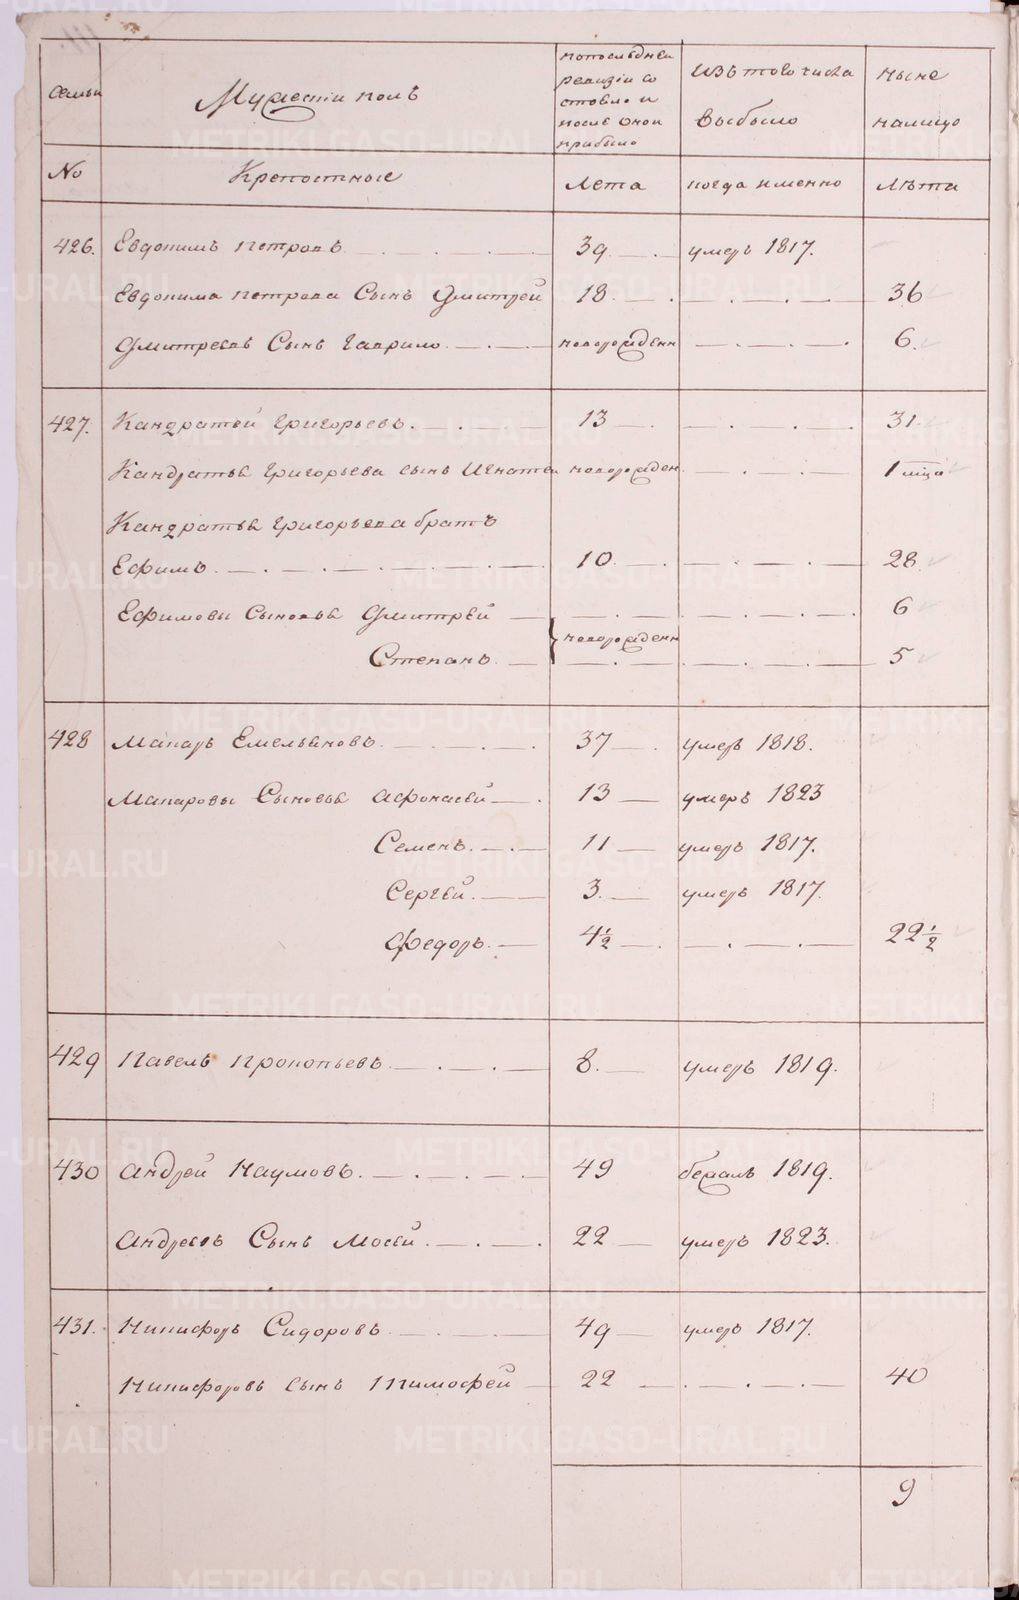 семьи
Мужескiй полъ
попоследней
ревизiи со
стояло и
после оной
прибыло
Изъ того числа
выбыло
ныне
налицо
No Крепостные Лета когда именно Лѣта
426. Евдокимъ Петровъ 39 умеръ 1817.
Евдокима Петрова Сынъ Дмитрей 18 36
Дмитревъ Сынъ Гаврило новорожденн 6
427. Кандратей Григорьевъ 13 31
Кандратья Григорьева сынъ Игнатей новорожден 1 мца
Кандратья Григорьева братъ
Ефимъ 10 28
Ефимовы Сыновья Дмитрей 6
новорожденн
Степанъ 5
428 Макаръ Емельяновъ 37 умеръ 1818.
Макаровы Сыновья Афонасей 13 умеръ 1823
Семенъ 11 умеръ 1817.
Сергѣй 3 умеръ 1817.
Федоръ 4½ 22½
429 Павелъ Прокопьевъ 8 умеръ 1819.
430 Андрей Наумовъ 49 бежалъ 1819.
Андреевъ Сынъ Мосей 22 умеръ 1823.
431. Никифоръ Сидоровъ 49 умеръ 1817.
Никифоровъ сынъ Тимофей 22 40
9
METRIKI.GASO-URAL.RU